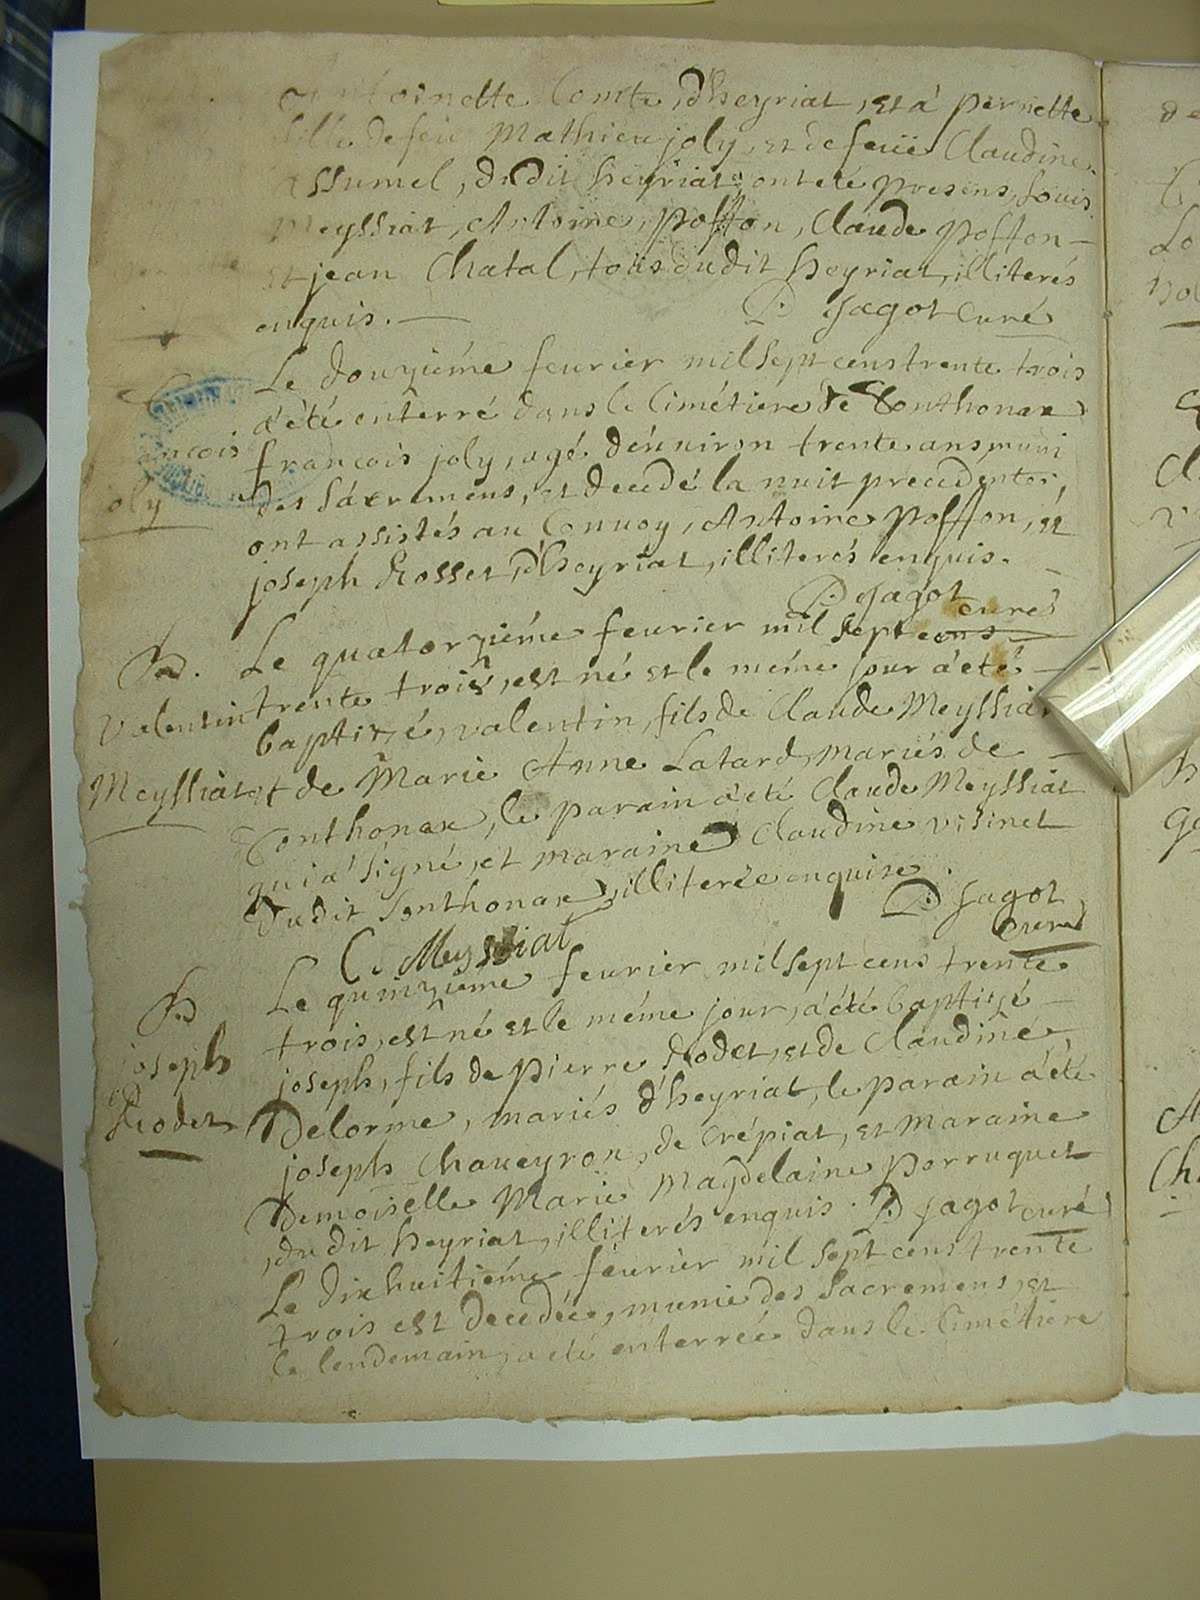 Antoinette Comte, d'heyriat, et a' pernette
fille de feu Mathieu joly, et de feüe Claudine
assumel, dudit heyriat, ont eté presens, Louis
Meyssiat, Antoine poffon, Claude poffon –
et jean Chatal, tous dudit heyriat, illiterés
enquis. — P. Jagot Curé
Le douziéme feurier mil sept cens trente trois
a'été enterré dans le Cimétiere de Sonthonax
françois joly, agé d'enuiron trente ans muni
des Sacremens, et decedé la nuit precedente,
ont assistés au Conuoy, Antoine poffon, et
joseph Rosset, d'heyriat, illiterés enquis. –
P. Jagot
curé
françois
joly
B.
Valentin
Meyssiat
Le quatorziéme feurier mil sept cens
trente trois, est né et le méme jour a'été –
baptizé, valentin, fils de Claude Meyssiat
et de Marie Anne Latard, mariés de –
Sonthonax, le parain a'eté Claude Meyssiat
qui a' signé, et maraine Claudine visinet
dudit Sonthonax, illiterée enquise.
P. Jagot
curé
C. Meyssiat
B
joseph
Rodet
Le quinziéme feurier mil sept cens trente
trois, est né et le méme jour, a'été baptizé –
joseph, fils de pierre Rodet, et de Claudine
Delorme, mariés d'heyriat, le parain a'eté
joseph Chaueyron, de Crépiat, et maraine
Demoiselle Marie Magdelaine perruquet
dudit heyriat, illiterés enquis. P Jagot curé
Le dixhuitiéme féurier mil sept cens trente
trois est decedée, munie des Sacremens, et
le lendemain, a eté enterrée dans le Cimétiere